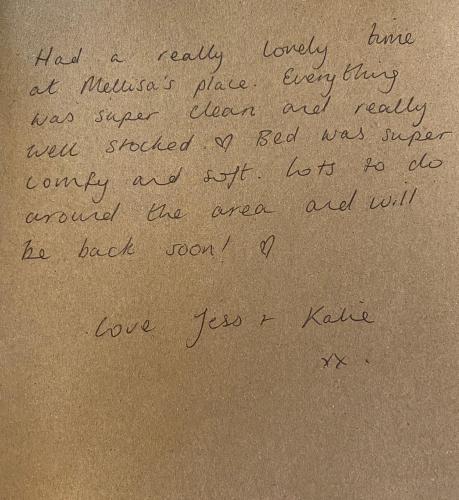 Had a really lovely time
at Mellisa's place. Everything
was super clean and really
well stocked. ♡ Bed was super
comfy and soft. Lots to do
around the area and will
be back soon! ♡
Love Jess + Katie
xx.